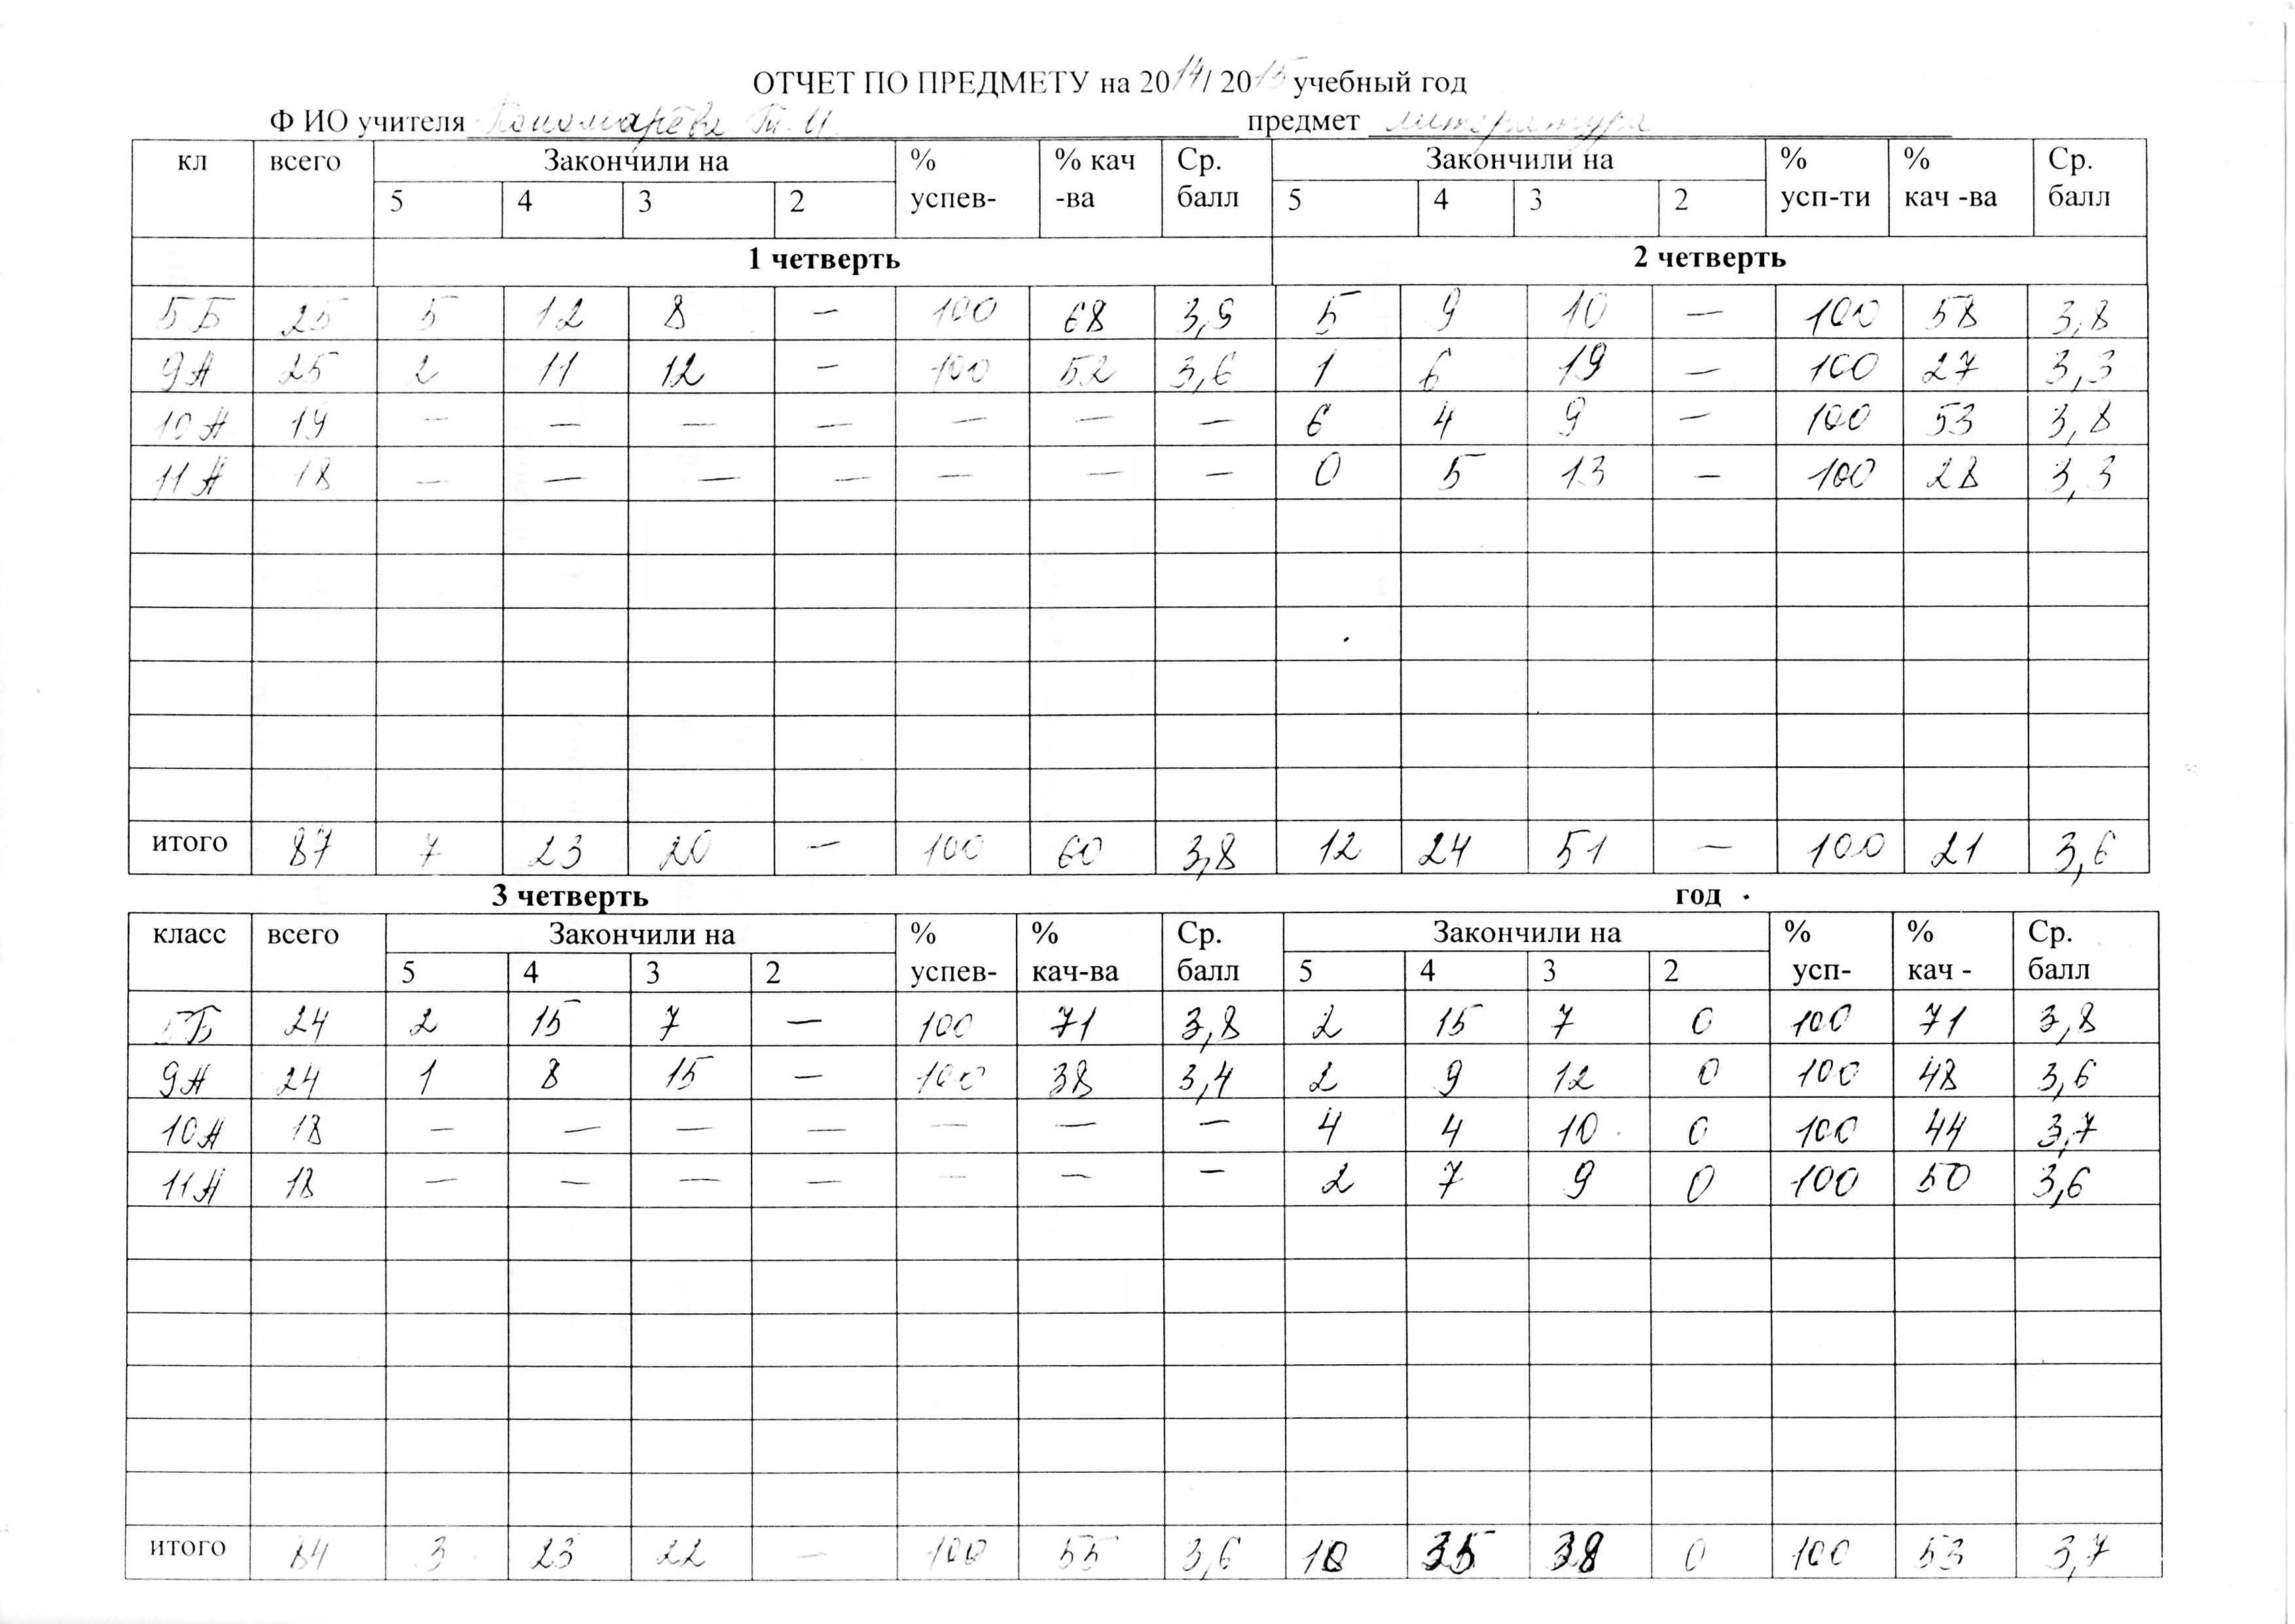 ОТЧЕТ ПО ПРЕДМЕТУ на 2014/ 2015 учебный год
Ф ИО учителя Пономарёва Т. И. предмет литература
кл всего Закончили на % успев- % кач -ва Ср. балл Закончили на % усп-ти % кач -ва Ср. балл
5 4 3 2 5 4 3 2
1 четверть 2 четверть
5Б 25 5 12 8 — 100 68 3,9 5 9 10 — 100 58 3,8
9А 25 2 11 12 — 100 52 3,6 1 6 19 — 100 27 3,3
10А 19 — — — — — — — 6 4 9 — 100 53 3,8
11А 18 — — — — — — — 0 5 13 — 100 28 3,3
итого 87 7 23 20 — 100 60 3,8 12 24 51 — 100 21 3,6
3 четверть год
класс всего Закончили на % успев- % кач-ва Ср. балл Закончили на % усп- % кач - Ср. балл
5 4 3 2 5 4 3 2
5Б 24 2 15 7 — 100 71 3,8 2 15 7 0 100 71 3,8
9А 24 1 8 15 — 100 38 3,4 2 9 12 0 100 48 3,6
10А 18 — — — — — — — 4 4 10 0 100 44 3,7
11А 18 — — — — — — — 2 7 9 0 100 50 3,6
итого 84 3 23 22 — 100 55 3,6 10 35 38 0 100 53 3,7